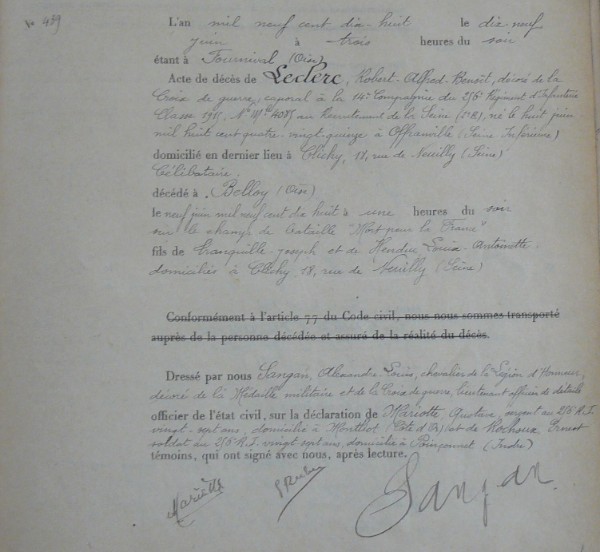 No 489
L'an mil neuf cent dix huit le dix neuf
juin à trois heures du soir
étant à Fournival (Oise)
Acte de décès de Leclerc, Robert-Alfred-Benoît, décoré de la
Croix de guerre, caporal à la 14e Compagnie du 278e Régiment d'Infanterie
Classe 1915, No Mle 4085 au Recrutement de la Seine né le huit juin
mil huit cent quatre-vingt-quinze à Offranville (Seine Inférieure)
domicilié en dernier lieu à Clichy, 18, rue de Neuilly (Seine)
Célibataire.
décédé à Belloy (Oise)
le neuf juin mil neuf cent dix huit à une heures du soir
sur le champ de bataille "Mort pour la France"
fils de Tranquille-Joseph et de Louise-Antoinette
domiciliés à Clichy, 18, rue de Neuilly (Seine)
Conformément à l'article 77 du Code civil, nous nous sommes transporté
auprès de la personne décédée et assuré de la réalité du décès.
Dressé par nous Sangan, Alexandre-Louis, chevalier de la Légion d'Honneur,
décoré de la Médaille militaire et de la Croix de guerre, lieutenant officier de détails
officier de l'état civil, sur la déclaration de Mariotte Gustave, sergent au 278e R.I.
vingt-sept ans, domicilié à Monthlot (Côte d'Or) et de Rochoux Ernest
soldat au 278e R.I. vingt sept ans, domicilié à Poinçonnet (Indre)
témoins, qui ont signé avec nous, après lecture.
Mariotte
Sangan